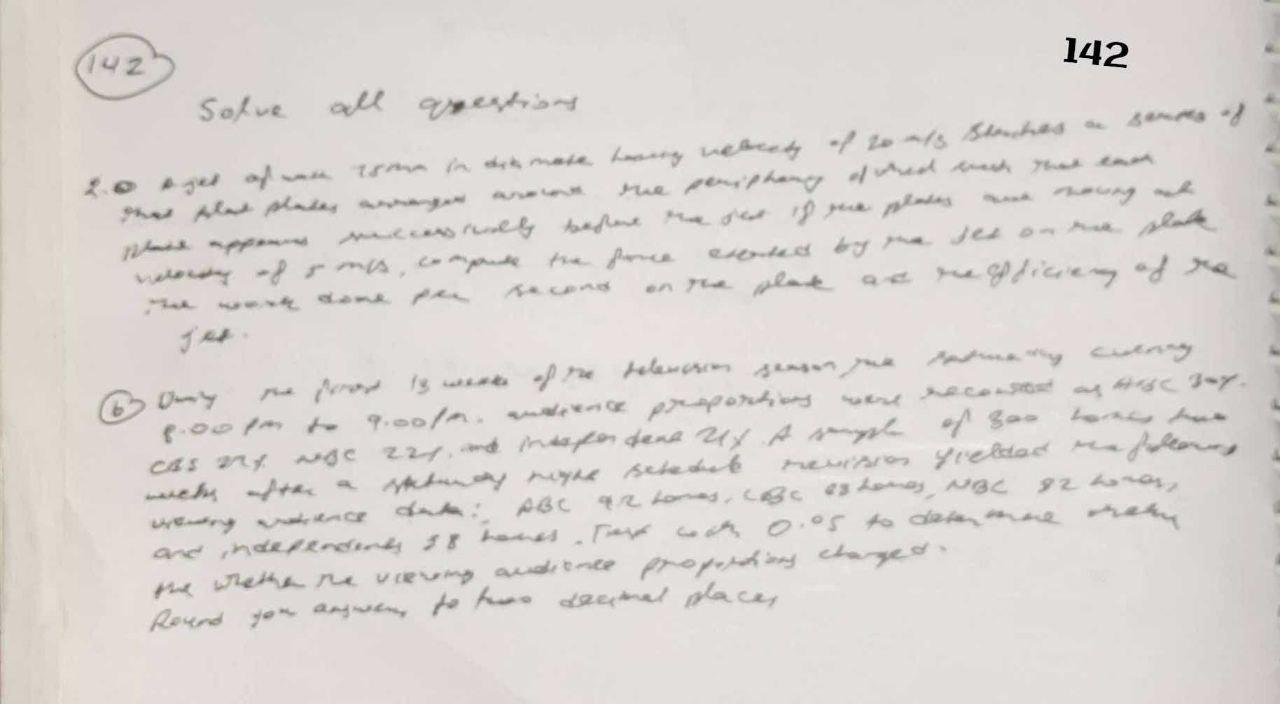 142
142
Solve all questions
2. a A jet of 75mm in diameter having velocity of 20 m/s a series of
flat plates arranged around the periphery of wheel such that each
plate appears successively before the jet if the plates are moving at
velocity of 5 m/s, compute the force exerted by the jet on the plate
the work done per second on the plate the efficiency of the
jet.
b the first 13 weeks of the television season the saturday evening
8.00 pm to 9.00 pm. audience proportions were recorded as 
CBS NBC 22%. and independent 21%. A sample of 300 homes two
weeks after a night schedule revision yielded the following
viewing audience data: ABC 92 homes, homes, NBC 82 homes,
and independents 58 homes. Test with 0.05 to determine
the whether the viewing audience proportions changed.
Round your answers to two decimal places